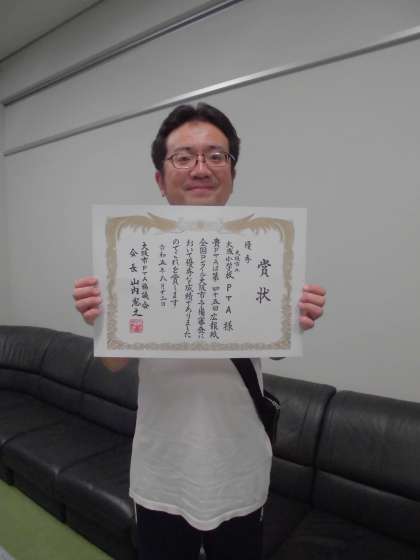 優秀
賞状
大阪市立
大池小学校 PTA 様
貴PTAは第四十五回広報紙
全国コンクール大阪市予備審査に
おいて優秀な成績でありました
のでこれを賞します
令和五年八月十二日
大阪市PTA協議会
会長 山内